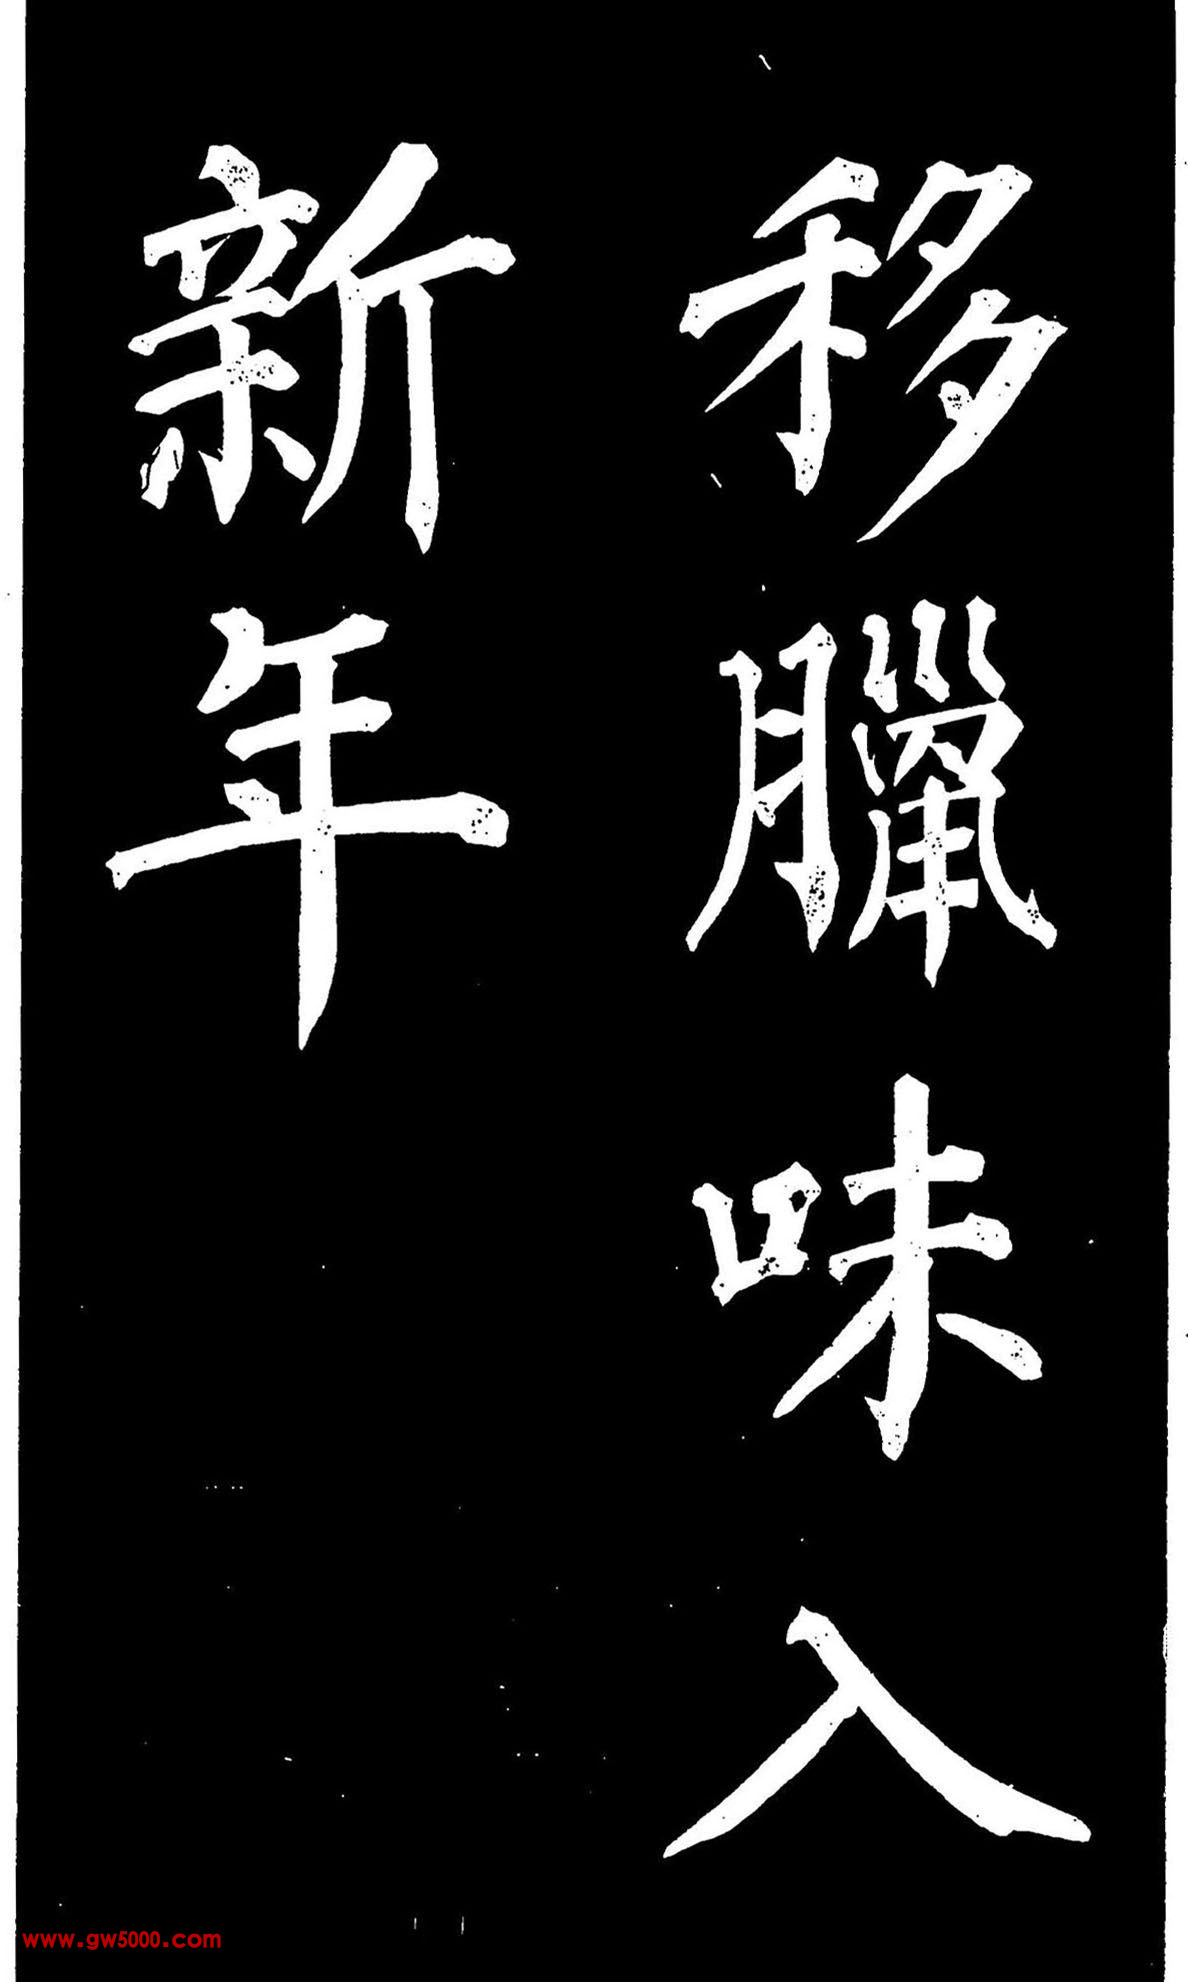 移臘味入
新年
www.gw5000.com